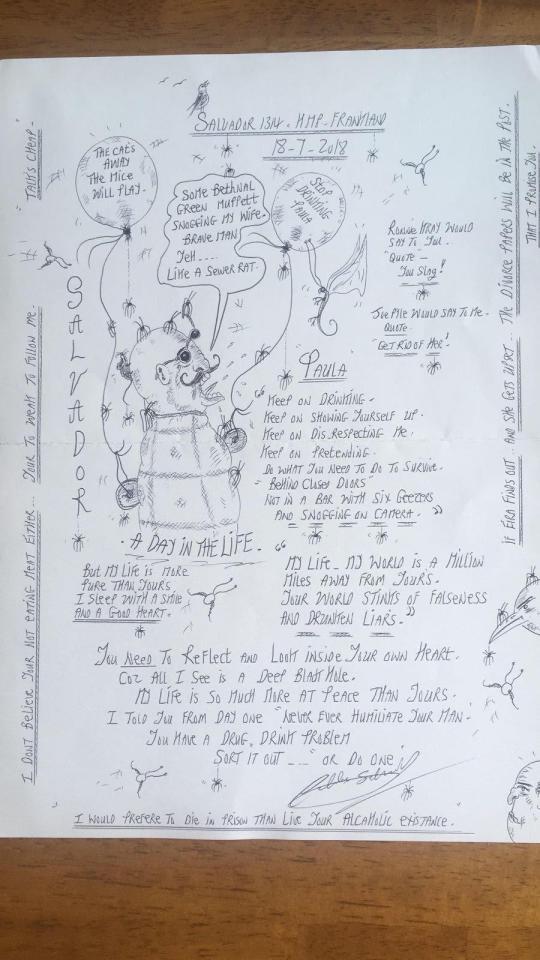 SALVADOR 1314. H.M.P. FRANKLAND
18-7-2018
THE CAT'S
AWAY
THE MICE
WILL PLAY.
SOME BETHNAL
GREEN MUPPETT
SNOGGING MY WIFE.
BRAVE MAN
YEH....
LIKE A SEWER RAT.
STOP
DRINKING
PAULA
RONNIE KRAY WOULD
SAY TO YOU.
QUOTE -
"YOU SLAG"!
JOE PYLE WOULD SAY TO ME.
QUOTE.
"GET RID OF HER"!
SALVADOR
PAULA
"KEEP ON DRINKING.
KEEP ON SHOWING YOURSELF UP.
KEEP ON DIS.RESPECTING ME.
KEEP ON PRETENDING.
DO WHAT YOU NEED TO DO TO SURVIVE.
"BEHIND CLOSED DOORS"
NOT IN A BAR WITH SIX GEEZERS
AND SNOGGING ON CAMERA."
. A DAY IN THE LIFE.
BUT MY LIFE IS MORE
PURE THAN YOURS.
I SLEEP WITH A SMILE
AND A GOOD HEART.
"MY LIFE - MY WORLD IS A MILLION
MILES AWAY FROM YOURS.
YOUR WORLD STINKS OF FALSENESS
AND DRUNKEN LIARS."
YOU NEED TO REFLECT AND LOOK INSIDE YOUR OWN HEART.
COZ ALL I SEE IS A DEEP BLACK HOLE.
MY LIFE IS SO MUCH MORE AT PEACE THAN YOURS.
I TOLD YOU FROM DAY ONE "NEVER EVER HUMILIATE YOUR MAN.
YOU HAVE A DRUG, DRINK PROBLEM
SORT IT OUT ..." OR DO ONE!
I WOULD PREFERE TO DIE IN PRISON THAN LIVE YOUR ALCAHOLIC EXISTANCE.
I DONT BELIEVE YOUR NOT EATING MEAT EITHER... YOUR TO WEAK TO FOLLOW ME. "TALK'S CHEAP."
IF EIRA FINDS OUT.. AND SHE GETS UPSET... THE DIVORCE PAPERS WILL BE IN THE POST.
THAT I PROMISE YOU.